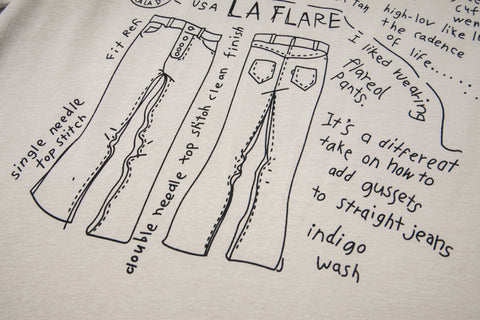 USA
LA FLARE
high-low like
the cadence
of life.......
Fit Ref
I liked wearing
flared
pants.
single needle
top stitch
double needle top stitch clean finish
It's a different
take on how to
add gussets
to straight jeans
indigo
wash